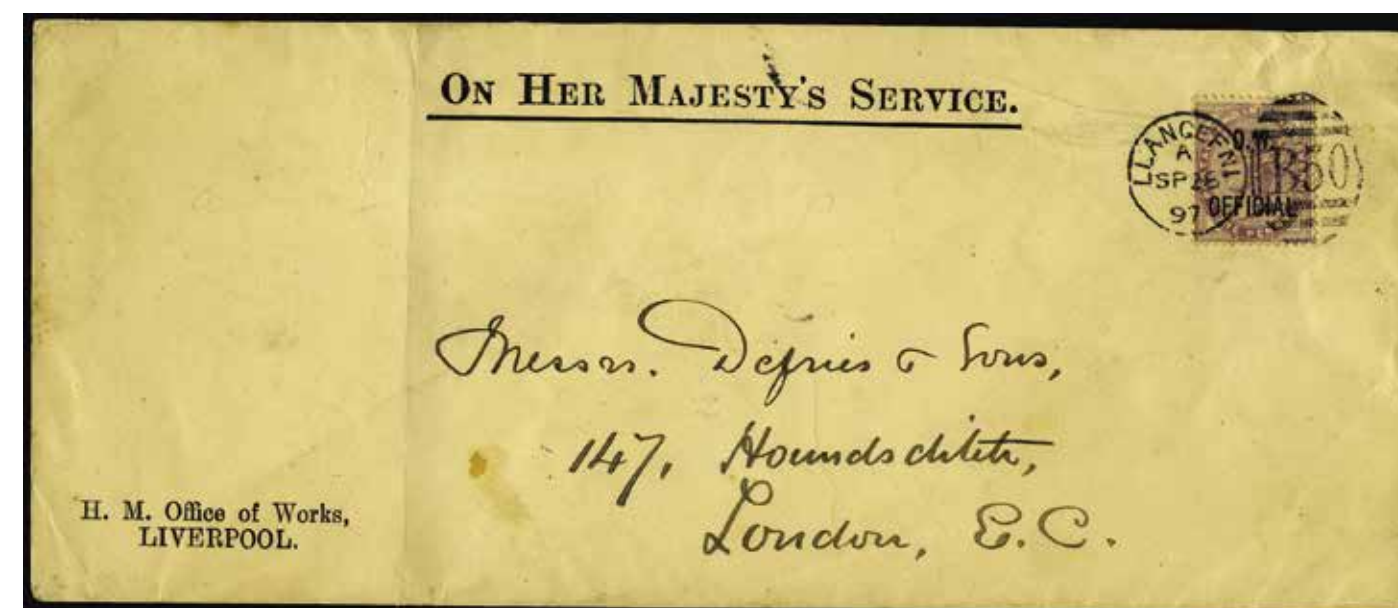 ON HER MAJESTY'S SERVICE.
LLANGEFNI
A
SP 28
97
B50
O.W.
OFFICIAL
Messrs. Defries & Sons,
147, Houndsditch,
London, E.C.
H. M. Office of Works,
LIVERPOOL.